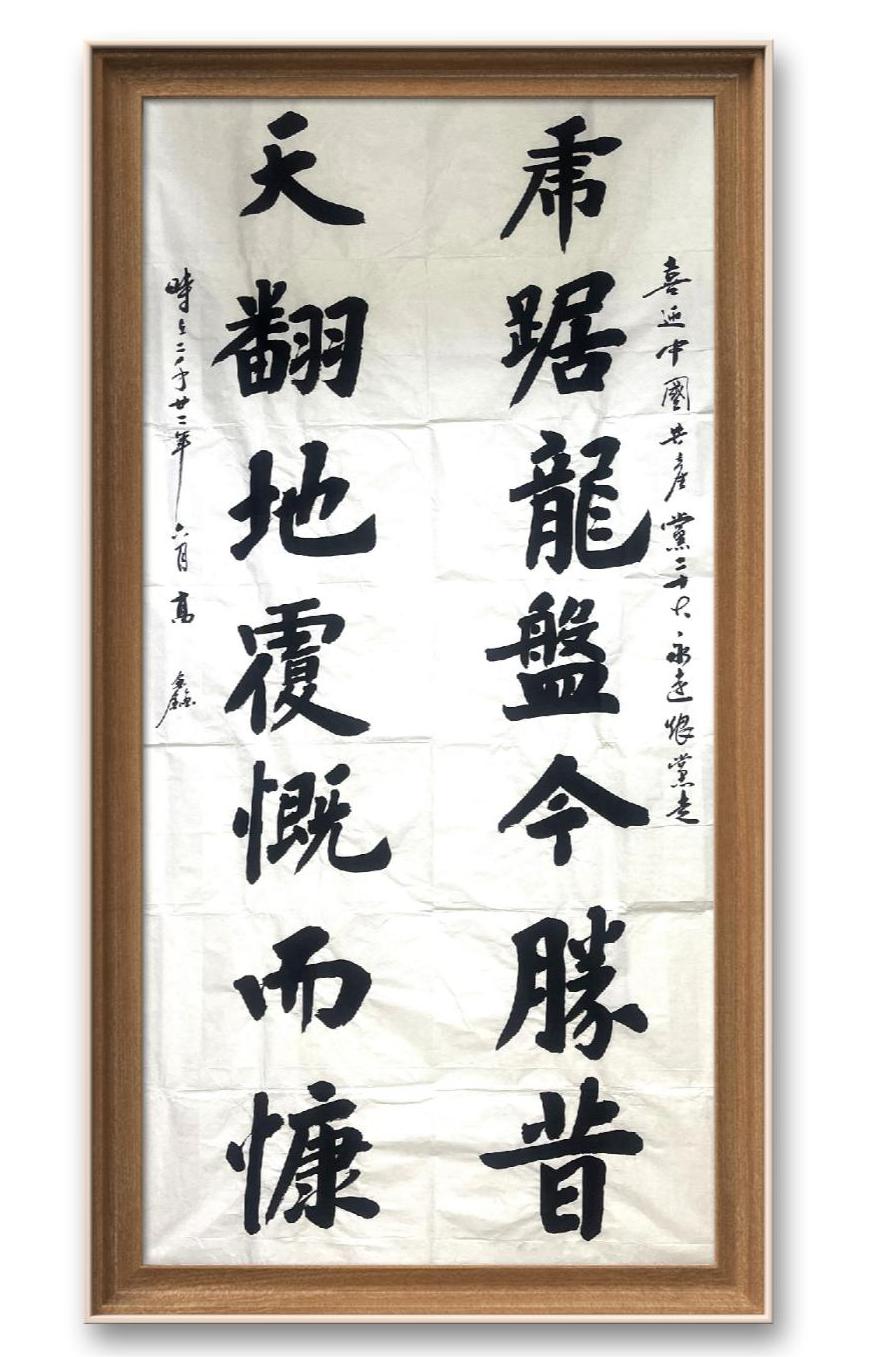 喜迎中國共產黨二十大永遠跟黨走
虎踞龍盤今勝昔
天翻地覆慨而慷
時在二〇廿二年六月高鑫